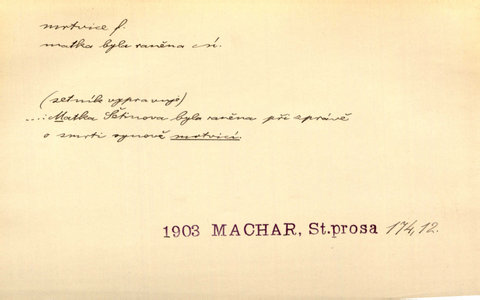 mrtvice f.
matka byla raněna čí.
(setník vypravuje)
...: Matka Šetinova byla raněna při zprávě
o smrti synově mrtvicí.
1903 MACHAR, St.prosa 174,12.